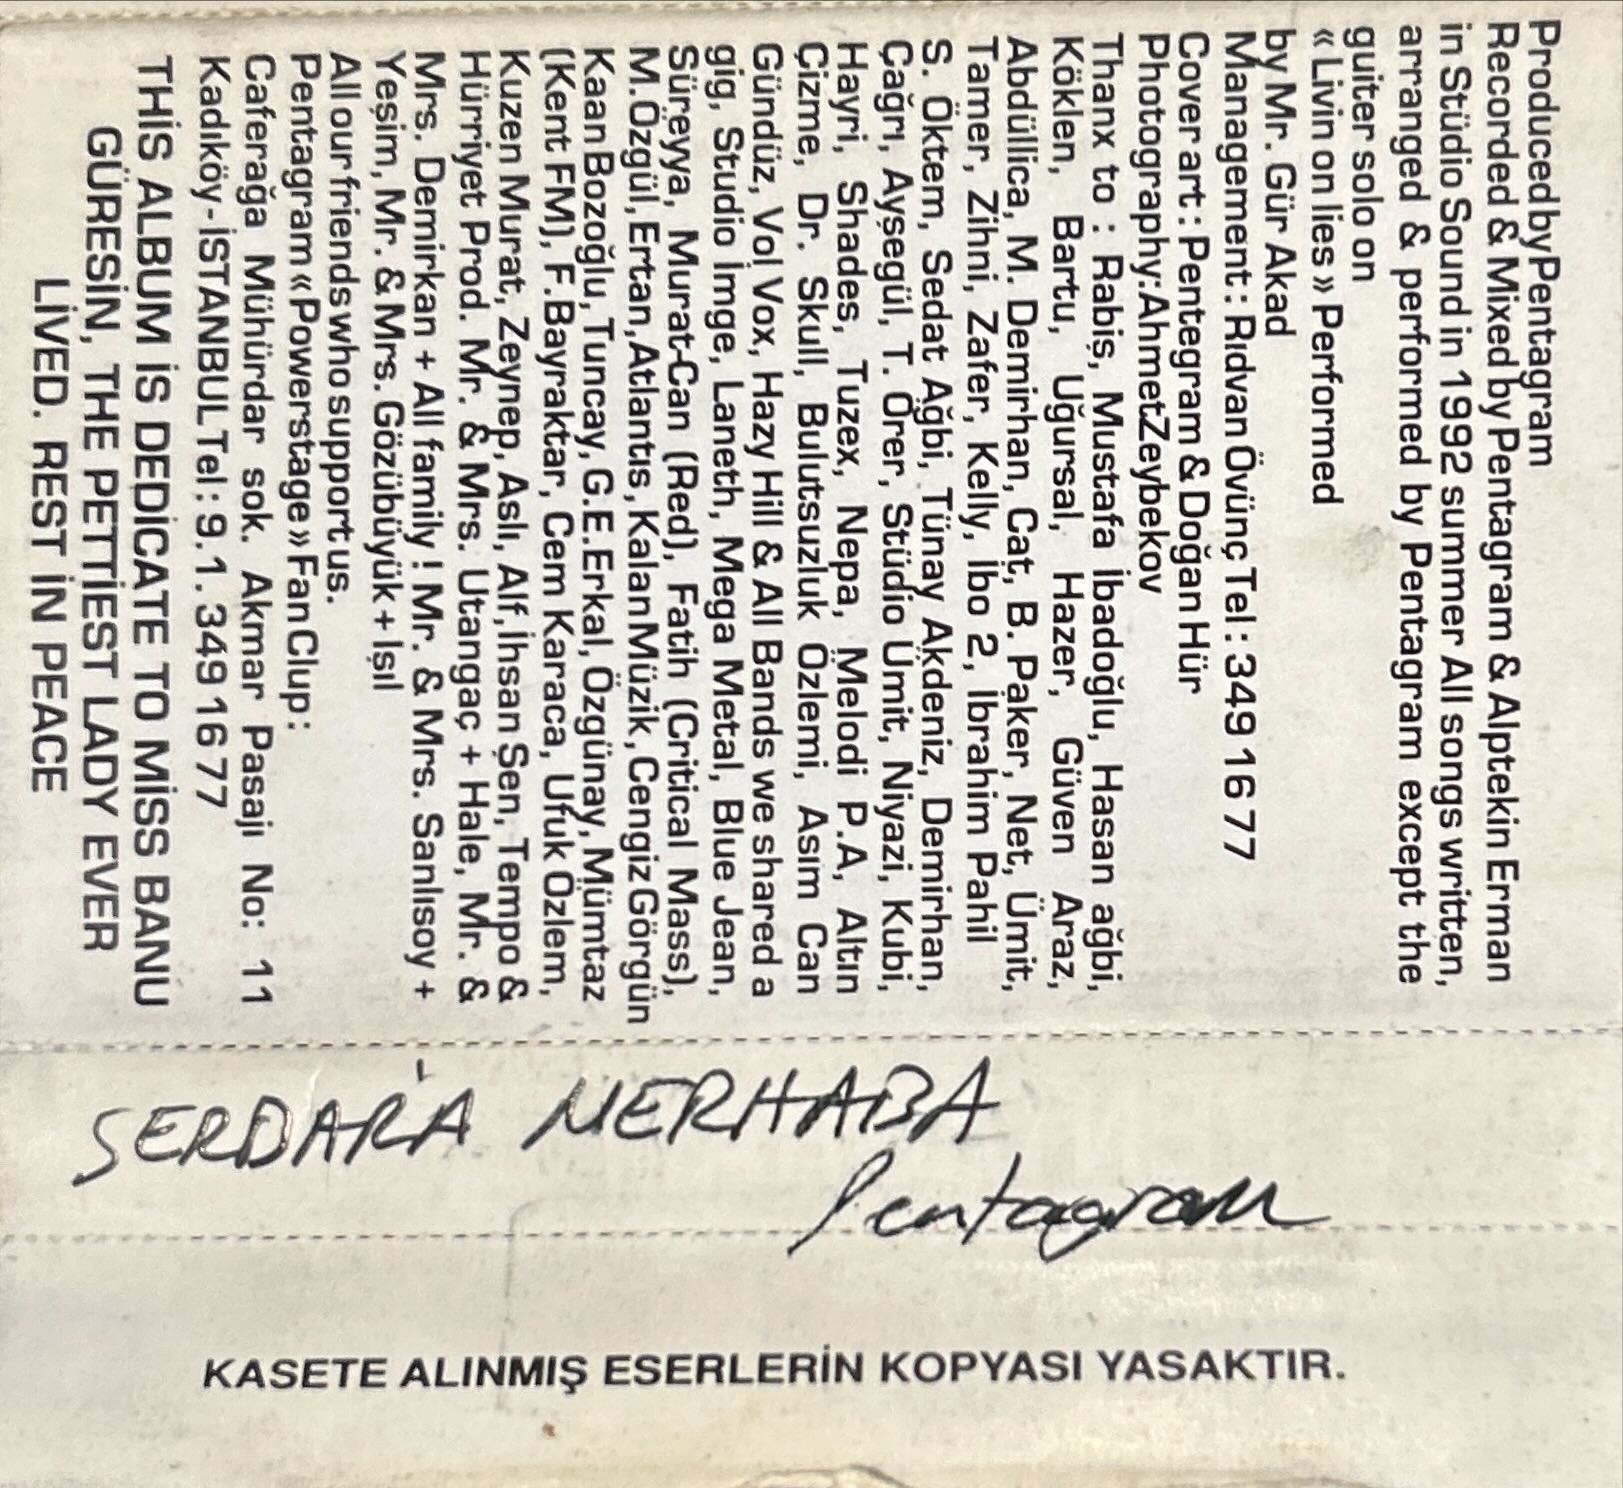 Produced by Pentagram
Recorded & Mixed by Pentagram & Alptekin Erman
in Stüdio Sound in 1992 summer All songs written,
arranged & performed by Pentagram except the
guiter solo on
«Livin on lies» Performed
by Mr. Gür Akad
Management : Rıdvan Övünç Tel : 349 16 77
Cover art : Pentegram & Doğan Hür
Photography: Ahmet Zeybekov
Thanx to : Rabiş, Mustafa İbadoğlu, Hasan ağbi,
Köklen, Bartu, Uğursal, Hazer, Güven Araz,
Abdüllica, M. Demirhan, Cat, B. Paker, Net, Ümit,
Tamer, Zihni, Zafer, Kelly, İbo 2, İbrahim Pahil
S. Öktem, Sedat Ağbi, Tünay Akdeniz, Demirhan,
Çağrı, Ayşegül, T. Örer, Stüdio Ümit, Niyazi, Kubi,
Hayri, Shades, Tuzex, Nepa, Melodi P.A, Altın
Çizme, Dr. Skull, Bulutsuzluk Özlemi, Asım Can
Gündüz, Vol Vox, Hazy Hill & All Bands we shared a
gig, Studio İmge, Laneth, Mega Metal, Blue Jean,
Süreyya, Murat-Can (Red), Fatih (Critical Mass),
M. Özgül, Ertan, Atlantis, Kalan Müzik, Cengiz Görgün
Kaan Bozoğlu, Tuncay, G.E. Erkal, Özgünay, Mümtaz
(Kent FM), F. Bayraktar, Cem Karaca, Ufuk Özlem,
Kuzen Murat, Zeynep, Aslı, Alf, İhsan Şen, Tempo &
Hürriyet Prod. Mr. & Mrs. Utangaç + Hale, Mr. &
Mrs. Demirkan + All family ! Mr. & Mrs. Sanlısoy +
Yeşim, Mr. & Mrs. Gözübüyük + Işıl
All our friends who support us.
Pentagram «Powerstage» Fan Clup :
Caferağa Mühürdar sok. Akmar Pasajı No: 11
Kadıköy - İSTANBUL Tel : 9. 1. 349 16 77
THİS ALBUM İS DEDİCATE TO MİSS BANU
GÜRESİN, THE PETTİEST LADY EVER
LİVED. REST İN PEACE
SERDAR'A MERHABA
Pentagram
KASETE ALINMIŞ ESERLERİN KOPYASI YASAKTIR.